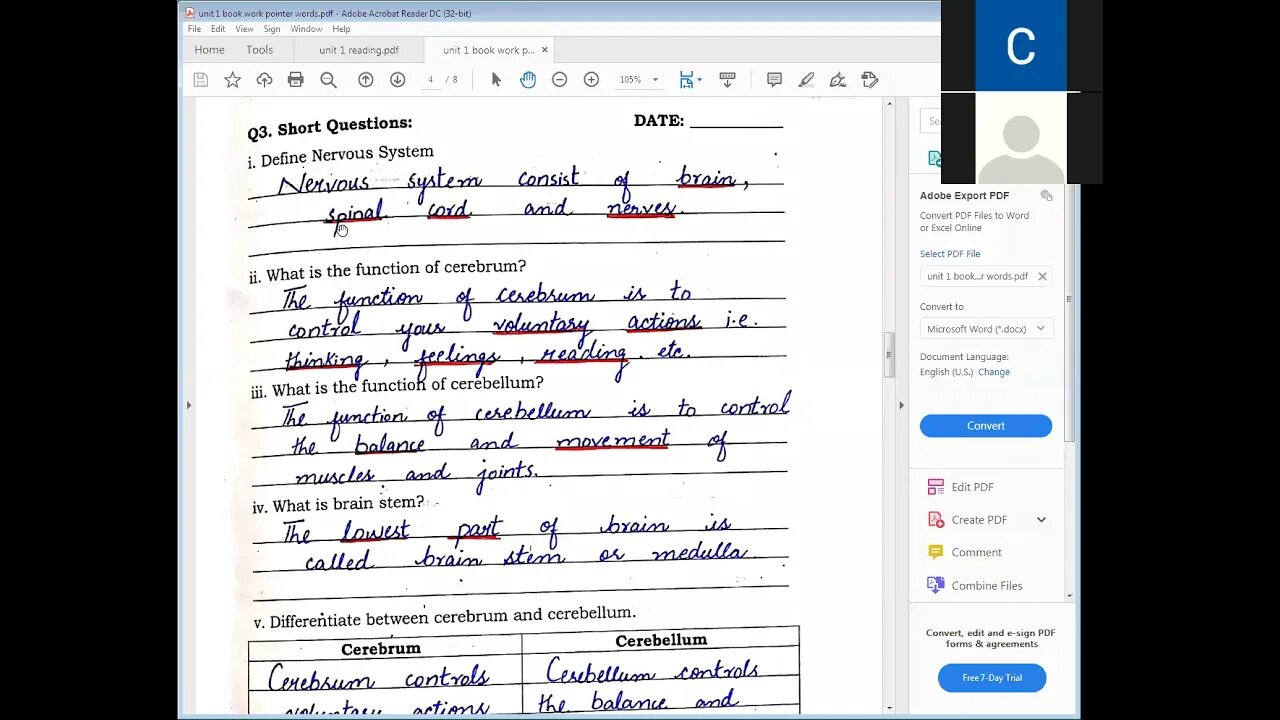 unit 1 book work pointer words.pdf - Adobe Acrobat Reader DC (32-bit)
File Edit View Sign Window Help
Home Tools unit 1 reading.pdf unit 1 book work p... ×
4 / 8 105%
C
Q3. Short Questions: DATE: ________
i. Define Nervous System
Nervous system consist of brain,
spinal cord and nerves.
ii. What is the function of cerebrum?
The function of cerebrum is to
control your voluntary actions i.e.
thinking, feelings, reading. etc.
iii. What is the function of cerebellum?
The function of cerebellum is to control
the balance and movement of
muscles and joints.
iv. What is brain stem?
The lowest part of brain is
called brain stem or medulla.
v. Differentiate between cerebrum and cerebellum.
Cerebrum Cerebellum
Cerebrum controls Cerebellum controls
voluntary actions the balance and
Adobe Export PDF
Convert PDF Files to Word
or Excel Online
Select PDF File
unit 1 book...r words.pdf
Convert to
Microsoft Word (*.docx)
Document Language:
English (U.S.) Change
Convert
Edit PDF
Create PDF
Comment
Combine Files
Convert, edit and e-sign PDF
forms & agreements
Free 7-Day Trial